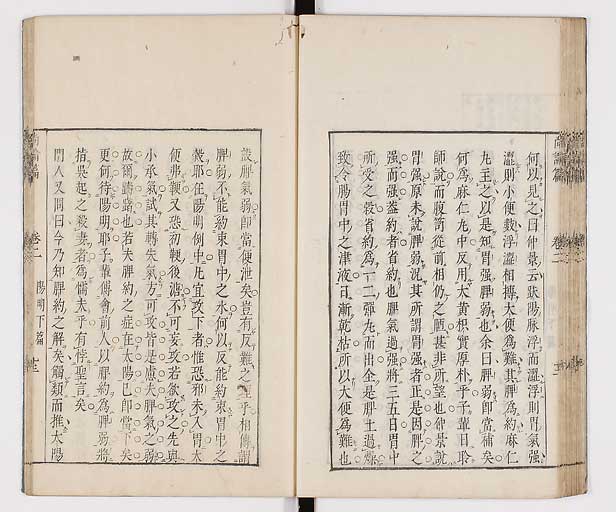 何以見之曰仲景云趺陽脉浮而濇浮則胃氣强
濇則小便數浮濇相搏大便爲難其脾爲約麻仁
丸主之以是知胃强脾弱也余曰脾弱卽當補矣
何爲麻仁丸中反用大黃枳實厚朴乎子輩日聆
師說而腹笥從前相仍之陋甚非所望也仲景說
胃强原未說脾弱况其所謂胃强者正是因脾之
强而强蓋約者省約也脾氣過强將三五日胃中
所受之穀省約爲一二彈丸而出全是脾土過燥
致令腸胃中之津液日漸乾枯所以大便爲難也
設脾氣弱卽當便泄矣豈有反難之理乎相傳謂
脾弱不能約束胃中之水何以反能約束胃中之
穀耶在陽明例中凡宜攻下者惟恐邪未入胃大
便弗鞕又恐初鞕後溏不可妄攻若欲攻之先與
小承氣試其轉失氣方可攻皆是慮夫脾氣之弱
故爾躊躇也若夫脾約之症在太陽已卽當下矣
更何待陽明耶子輩傳會前人以脾約爲脾弱將
指吳起之殺妻者爲懦夫乎有悖聖言矣
門人又問曰今乃知脾約之解矣觸類而推太陽
卷二
陽明下篇